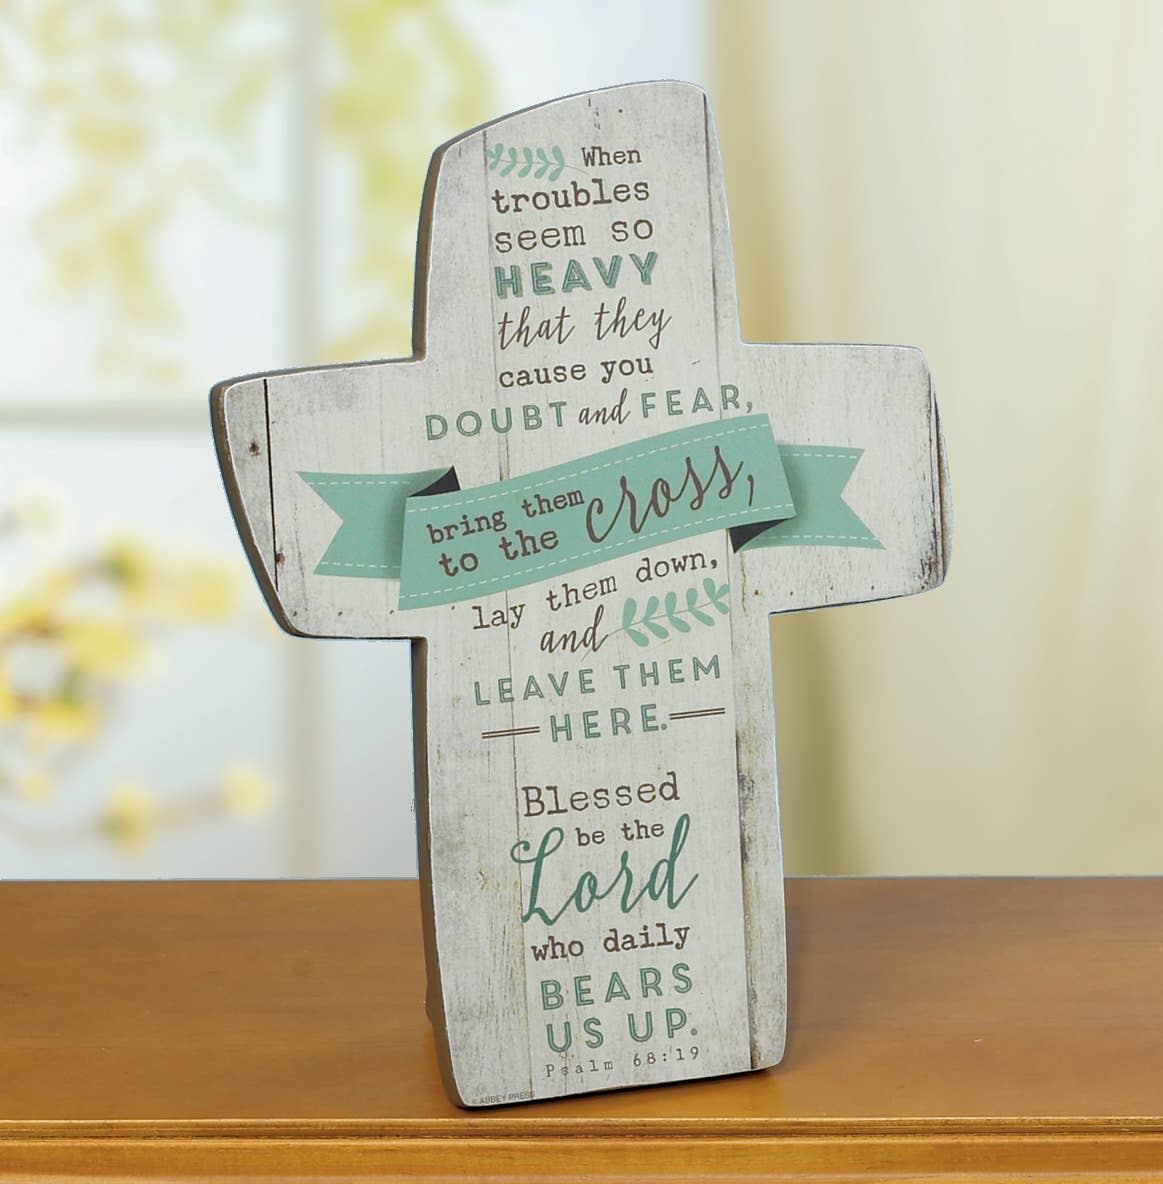 When
troubles
seem so
HEAVY
that they
cause you
DOUBT and FEAR,
bring them
to the cross,
lay them down,
and
LEAVE THEM
HERE.
Blessed
be the
Lord
who daily
BEARS
US UP.
Psalm 68:19
© ABBEY PRESS